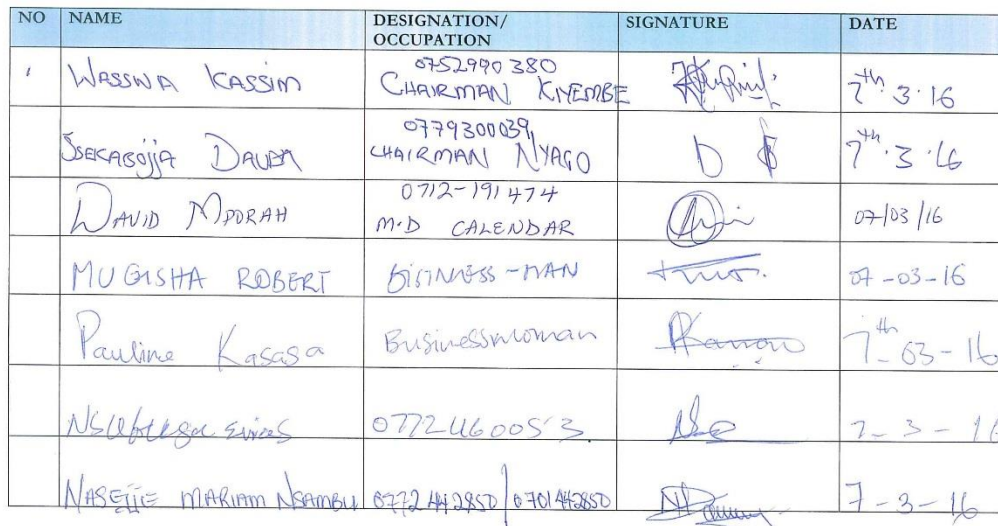 NO NAME DESIGNATION/ OCCUPATION SIGNATURE DATE
WASSWA KASSIM 0752990380 CHAIRMAN KIYEMBE 7th.3.16
SSEKABOJJA DAUDA 0779300039, CHAIRMAN NYAGO 7th.3.16
DAVID MPORAH 0712-191474 M.D CALENDAR 07/03/16
MUGISHA ROBERT BISINNESS-MAN 07-03-16
Pauline Kasasa Businesswoman 7th-03-16
0772460053 7-3-16
NASEJJE MARIAM NSAMBU 0772442850/0701442850 7-3-16